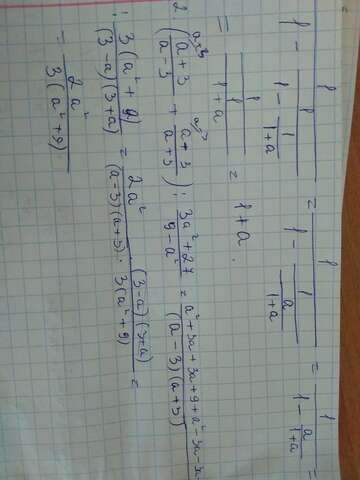 1/(1 - 1/(1 - 1/(1+a))) = 1/(1 - 1/(a/(1+a))) = 1/(1 - a/(1+a)) =
= 1/(1/(1+a)) = 1+a.
2. ((a+3)/(a-3) + (a+3)/(a+3)) : (3a²+27)/(9-a²) = (a²+3a+3a+9+a²-3a-)/((a-3)(a+3))
: 3(a²+9)/((3-a)(3+a)) = 2a²/((a-3)(a+3)) · (3-a)(3+a)/(3(a²+9)) =
= 2a²/(3(a²+9))